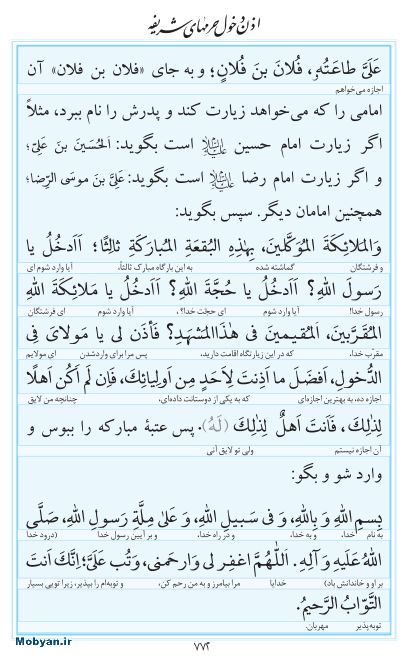 اذن دخول حرمهای شریفه
عَلَیَّ طاعَتُهُ، فُلانَ بنَ فُلانٍ؛ و به جای «فلان بن فلان» آن
اجازه می‌خواهم
امامی را که می‌خواهد زیارت کند و پدرش را نام ببرد، مثلاً
اگر زیارت امام حسین علیه‌السلام است بگوید: اَلحُسَینَ بنَ عَلِیٍّ؛
و اگر زیارت امام رضا علیه‌السلام است بگوید: عَلِیَّ بنَ موسَی الرِّضا؛
همچنین امامان دیگر. سپس بگوید:
وَالمَلائِکَةَ المُوَکَّلینَ، بِهٰذِهِ البُقعَةِ المُبارَکَةِ ثالِثًا؛ ءَاَدخُلُ یا
و فرشتگان گماشته شده به این بارگاه مبارک ثالثاً، آیا وارد شوم ای
رَسولَ اللهِ؟ ءَاَدخُلُ یا حُجَّةَ اللهِ؟ ءَاَدخُلُ یا مَلائِکَةَ اللهِ
رسول خدا! آیا وارد شوم ای حجت خدا؟، آیا وارد شوم ای فرشتگان
المُقَرَّبینَ، المُقیمینَ فی هٰذَاالمَشهَدِ؟ فَأذَن لی یا مَولایَ فِی
مقرب خدا، که در این زیارتگاه اقامت دارید، پس مرا برای واردشدن ای مولایم
الدُّخولِ، اَفضَلَ ما اَذِنتَ لِاَحَدٍ مِن اَولِیائِکَ، فَاِن لَم اَکُن اَهلًا
اجازه ده، به بهترین اجازه‌ای که به یکی از دوستانت داده‌ای، چنانچه من لایق
لِذٰلِکَ، فَاَنتَ اَهلٌ لِذٰلِکَ (لَهُ). پس عتبهٔ مبارکه را ببوس و
آن اجازه نیستم ولی تو لایق آنی
وارد شو و بگو:
بِسمِ اللهِ وَ بِاللهِ، وَ فی سَبیلِ اللهِ، وَ عَلیٰ مِلَّةِ رَسولِ اللهِ، صَلَّی
به نام خدا، و به خدا، و در راه خدا، و بر آیین رسول خدا (درود خدا
اللهُ عَلَیهِ وَ آلِهِ. اَللّٰهُمَّ اغفِر لی وَارحَمنی، وَ تُب عَلَیَّ؛ اِنَّکَ اَنتَ
بر او و خاندانش باد) خدایا مرا بیامرز و به من رحم کن، و توبه‌ام را بپذیر، زیرا تویی بسیار
التَّوّابُ الرَّحیمُ.
توبه‌پذیر مهربان.
۷۷۲
Mobyan.ir